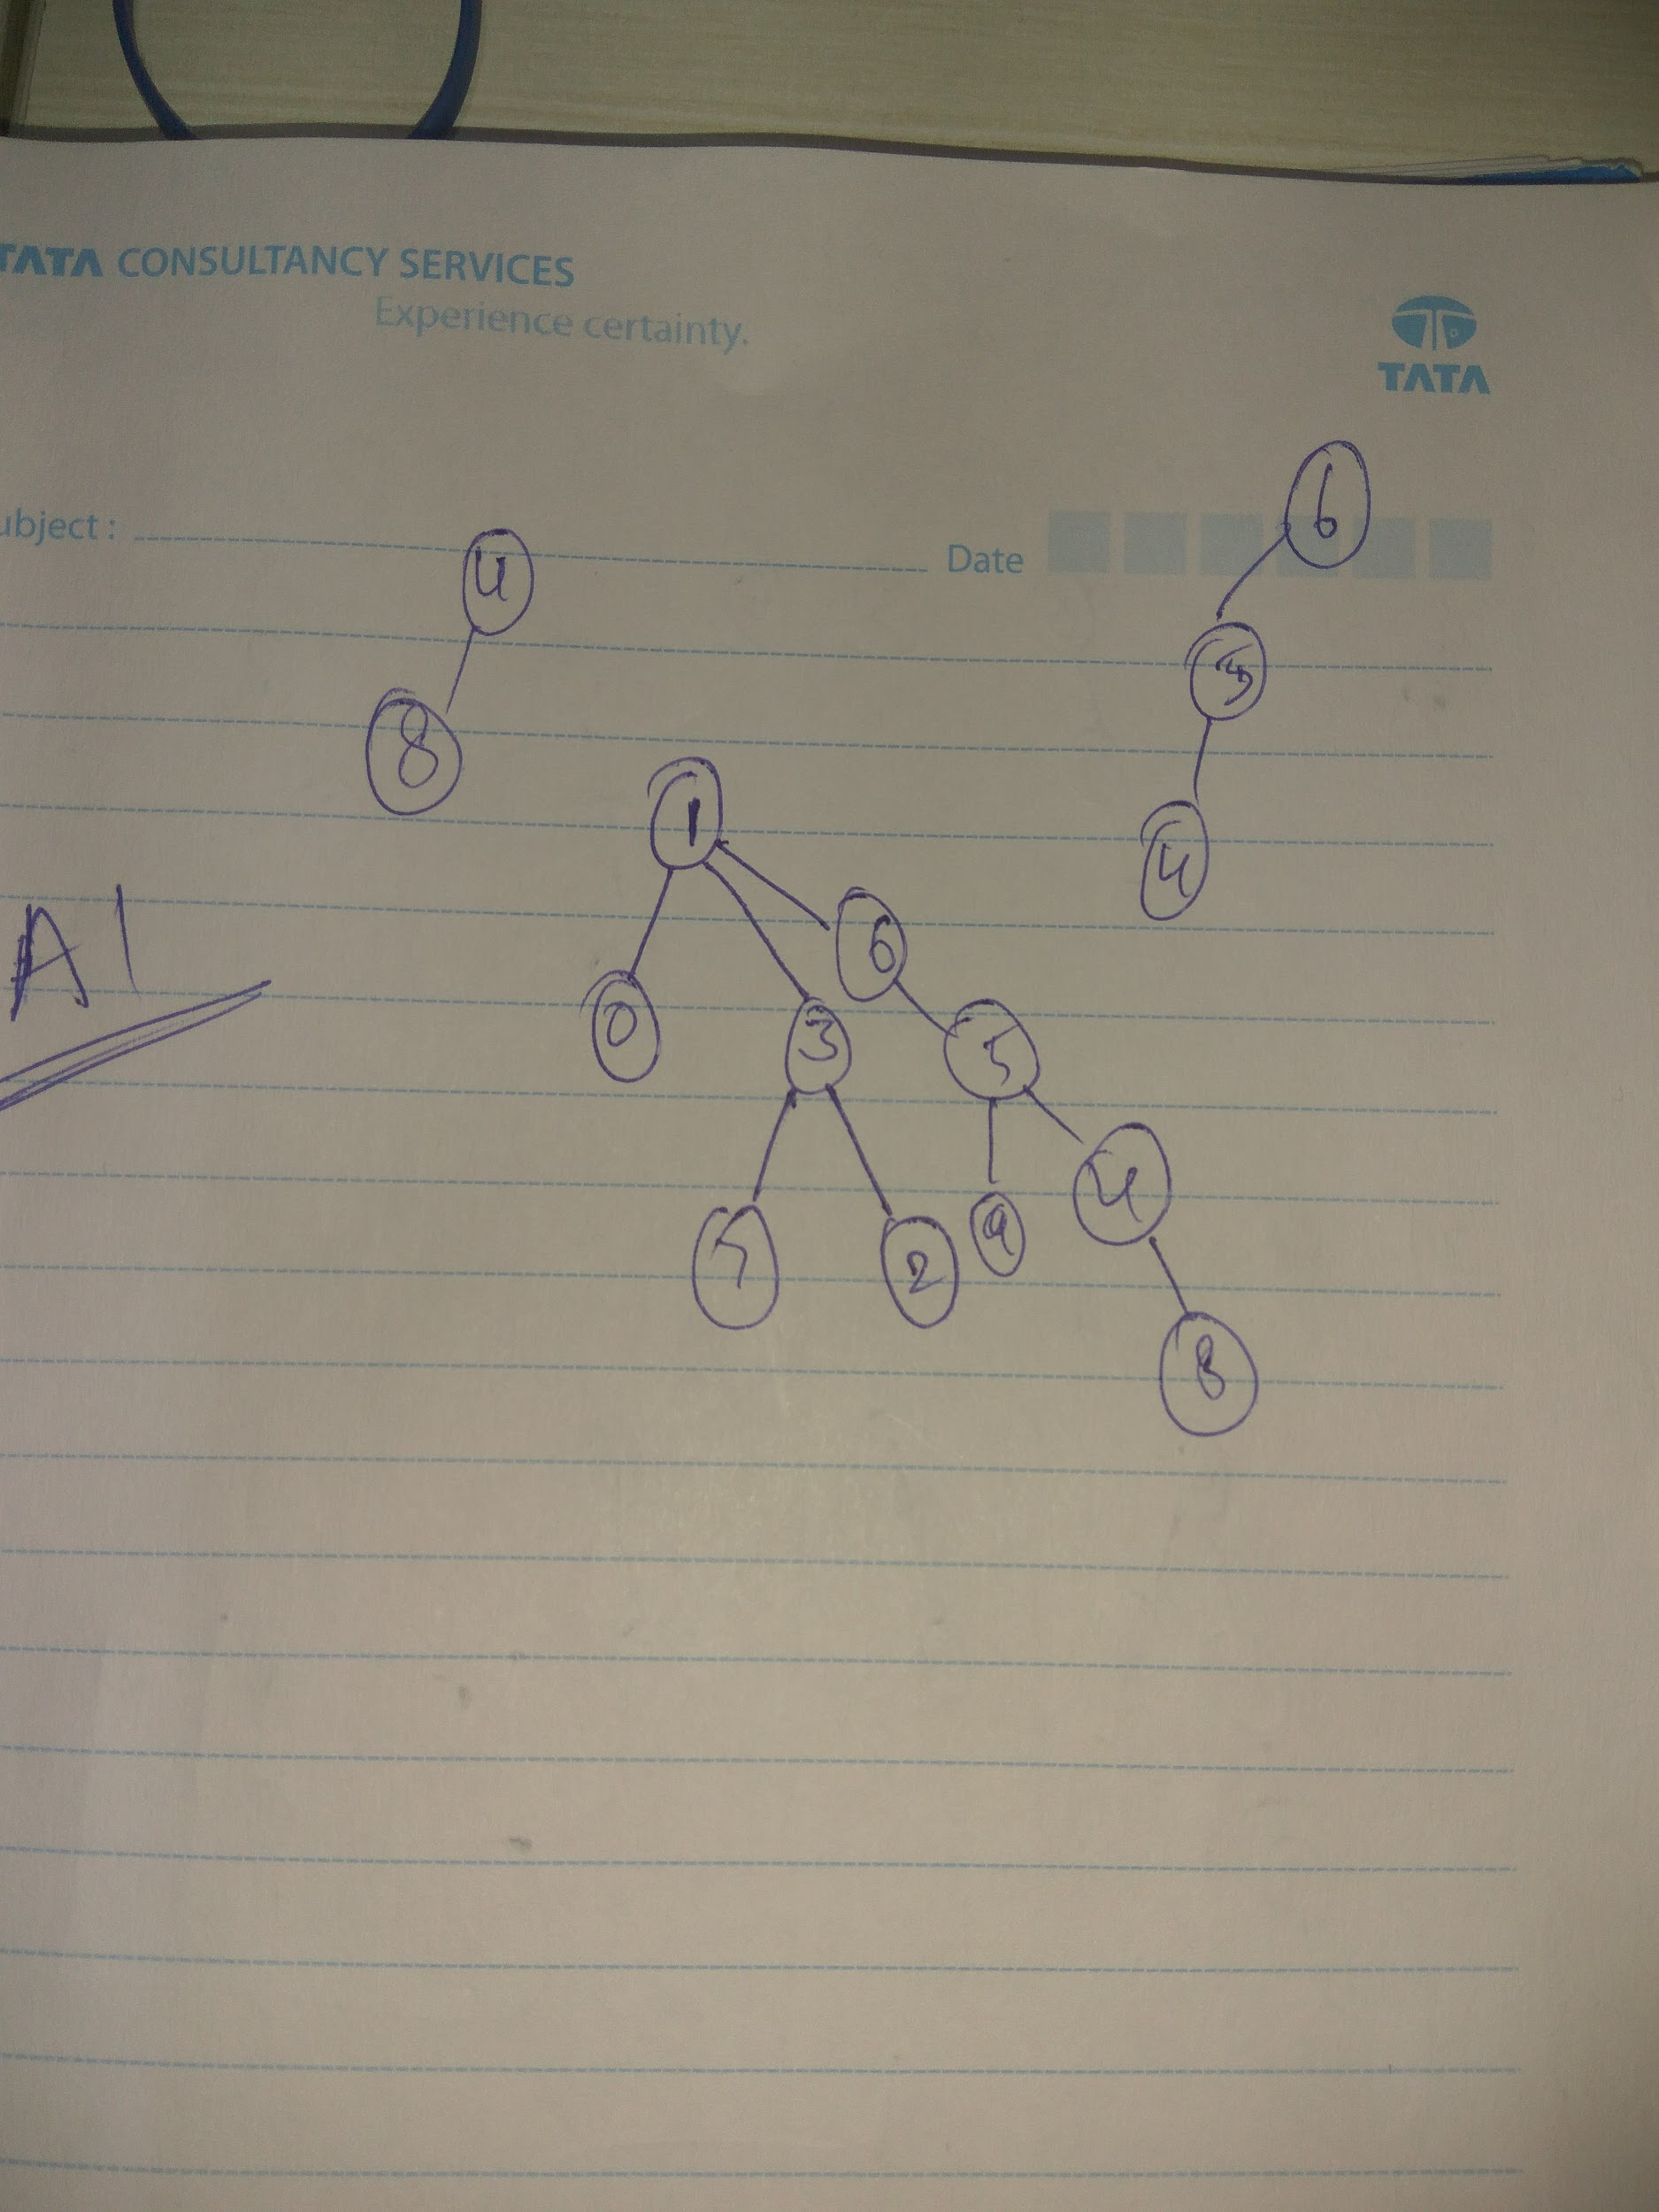 TATA CONSULTANCY SERVICES
Experience certainty.
TATA
ubject :
Date
6
4
8
4
1
A1
6
0
3
5
4
2
9
8